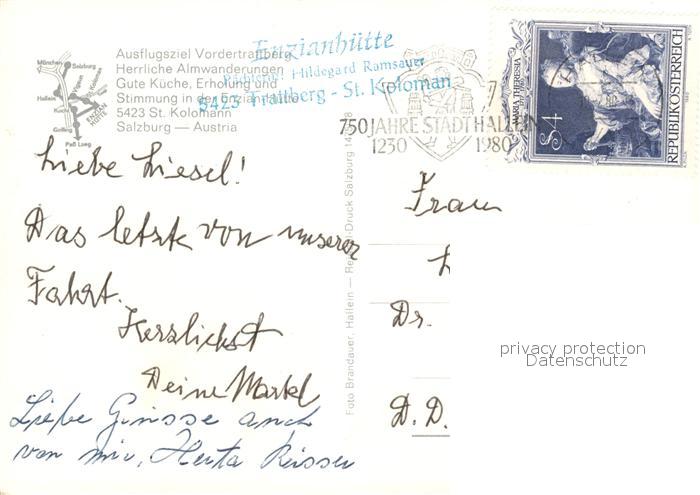 Ausflugsziel Vordertrattberg
Herrliche Almwanderungen
Gute Küche, Erholung und
Stimmung in der Enzianhütte
5423 St. Kolomann
Salzburg — Austria
München
Salzburg
Hallein
Kuchl
Golling
Paß Lueg
ENZIAN
HÜTTE
Enzianhütte
Hildegard Ramsauer
5423 Trattberg - St. Koloman
750 JAHRE STADT HALLEIN
1230 1980
S4
MARIA THERESIA
REPUBLIK ÖSTERREICH
Liebe Liesel!
Das letzte von unserer
Fahrt.
Herzlichst
Deine
Liebe Grüsse auch
von mir, Herta
Foto Brandauer, Hallein —
Druck Salzburg
Frau
L
Dr.
D. D.
privacy protection
Datenschutz